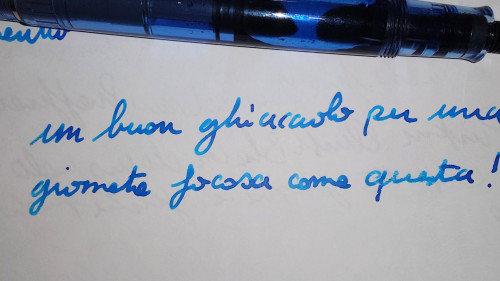 un buon ghiacciolo per una
giornata focosa come questa!